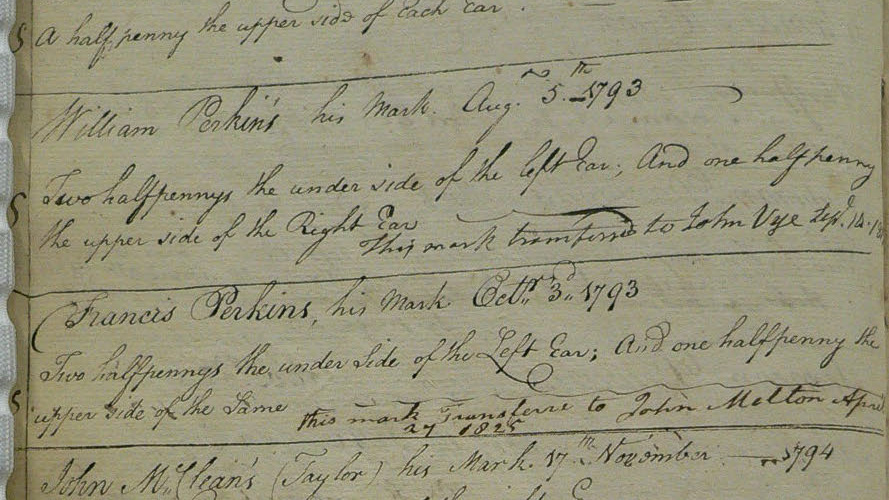 A halfpenny the upper side of Each Ear.
William Perkin's his Mark. Aug. 5th 1793
Two halfpennys the under side of the left Ear; And one halfpenny
the upper side of the Right Ear
This mark transferred to John Vye Sept. 14.
Francis Perkins, his Mark Octr 3d 1793
Two halfpennys the under Side of the Left Ear; And one halfpenny the
upper side of the Same
this mark Transferre to John Melton April
27 1825
John McClean's (Taylor) his Mark. 17th November 1794